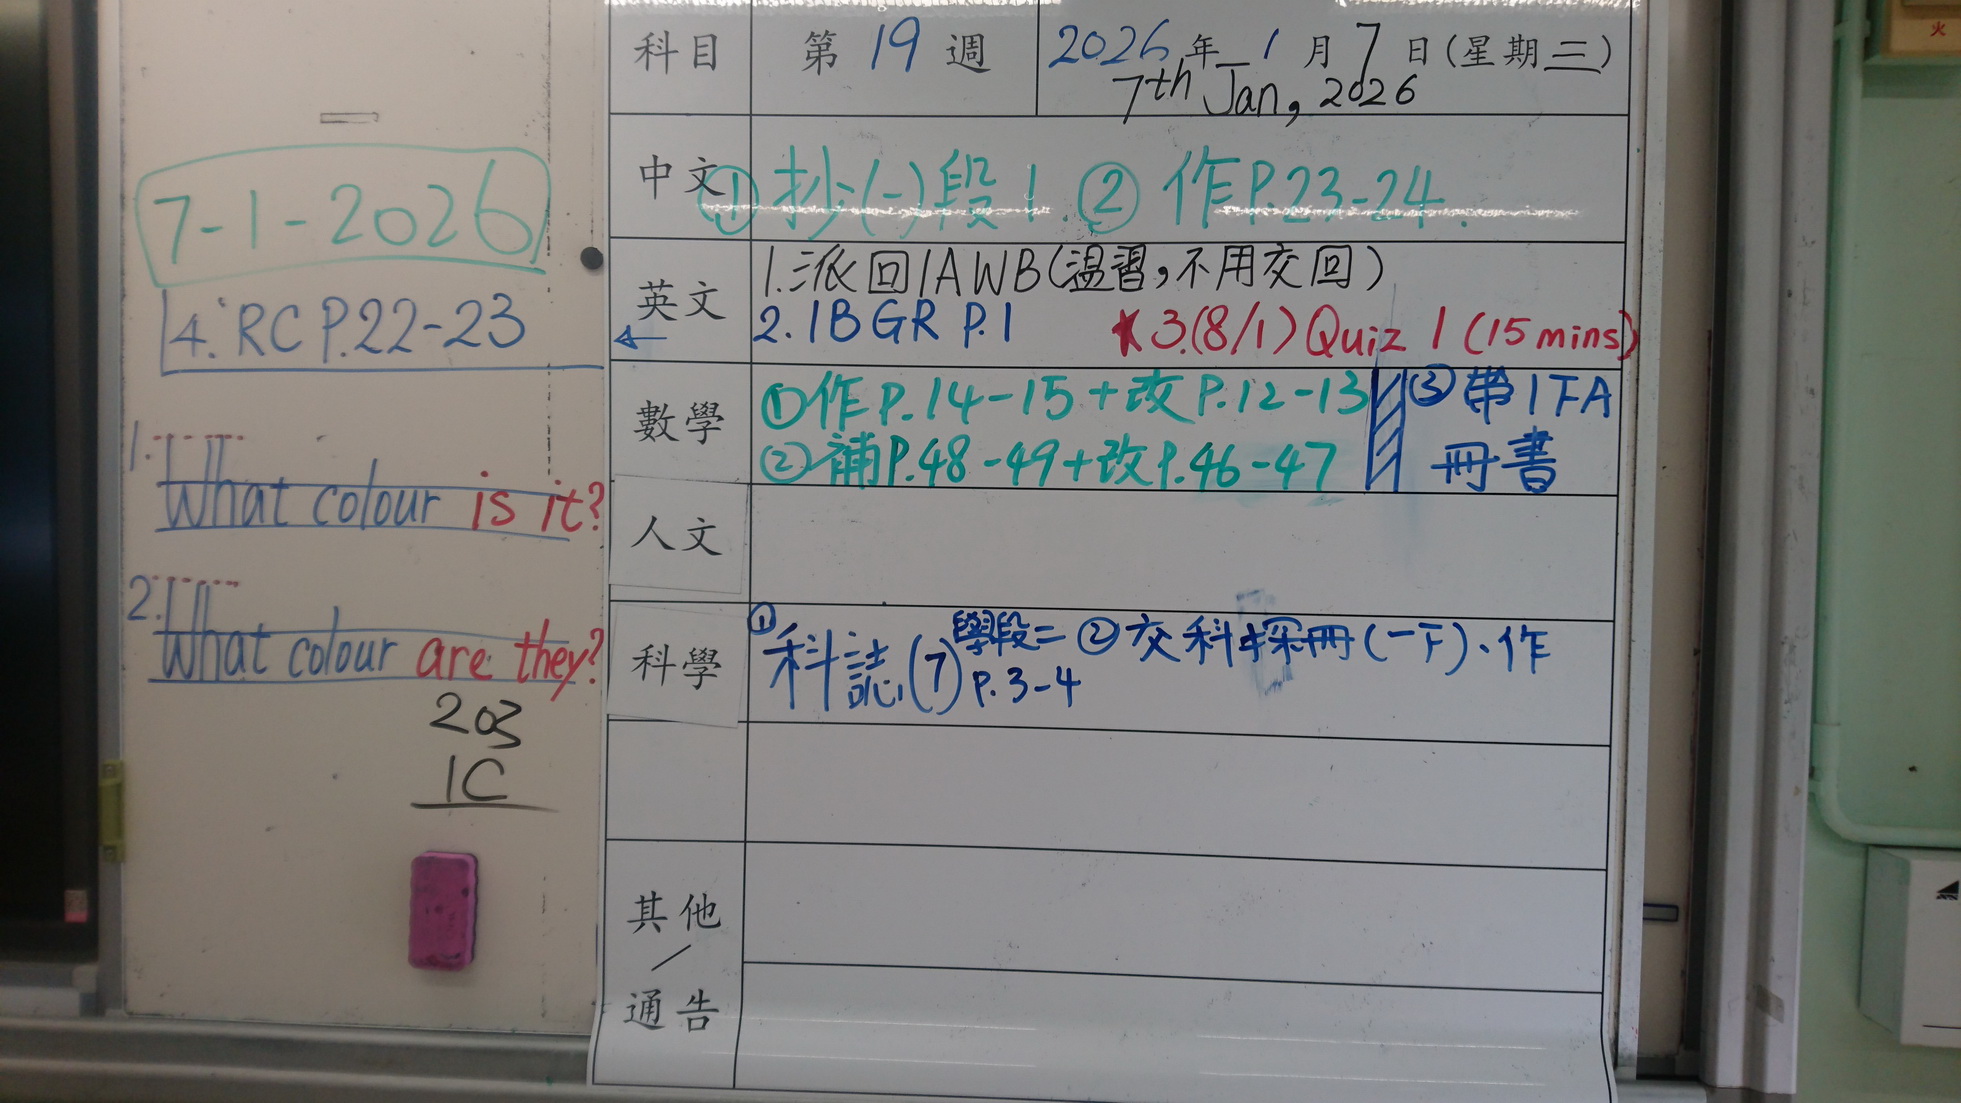 7-1-2026
4. RC P.22-23
1. What colour is it?
2. What colour are they?
203
1C
科目 第 19 週 2026 年 1 月 7 日 (星期三)
7th Jan, 2026
中文 ① 抄(一)段1. ② 作P.23-24.
英文 1. 派回1A WB(溫習,不用交回)
2. 1B GR P.1 * 3.(8/1) Quiz 1 (15 mins)
數學 ①作P.14-15+改P.12-13 ③ 帶1TA
②補P.48-49+改P.46-47 冊書
人文
科學 ① 科誌(7) 學段二 ② 交科探冊(一下)、作
P.3-4
其他
/
通告
火